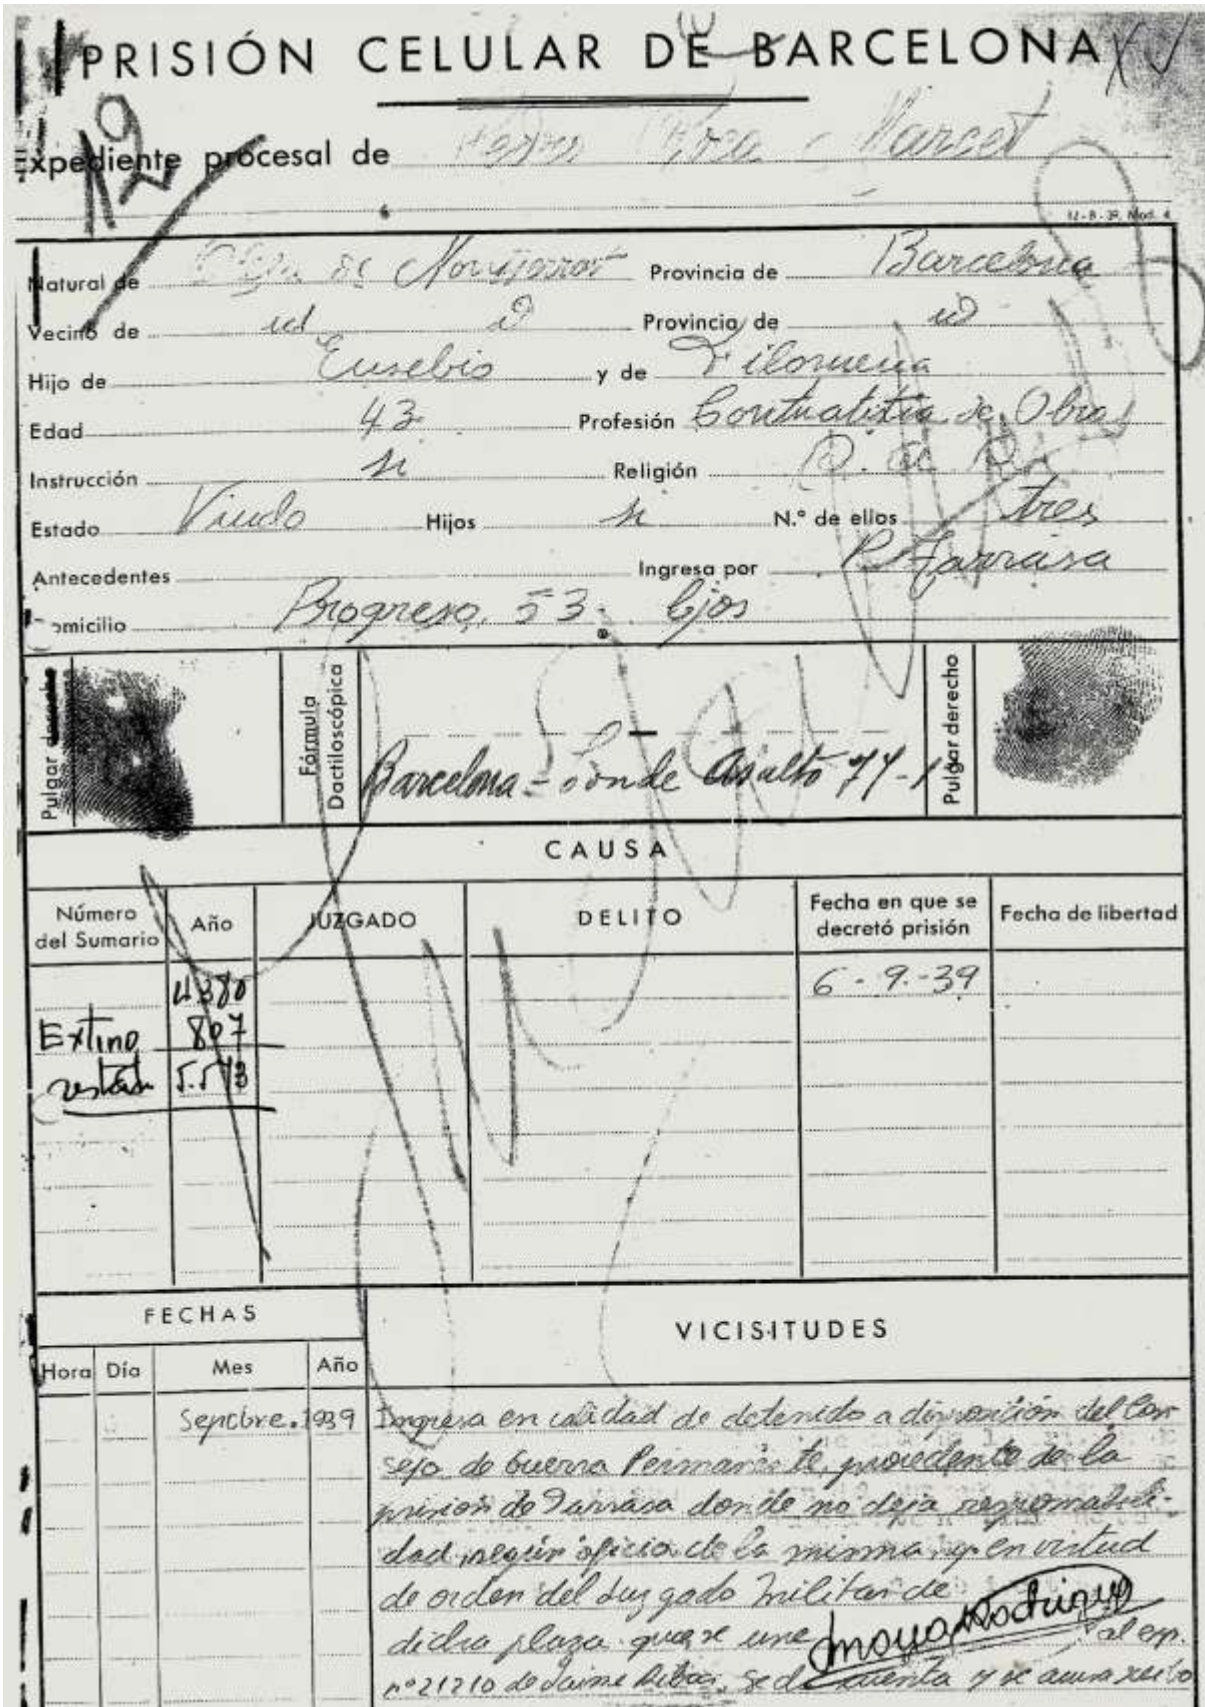 PRISIÓN CELULAR DE BARCELONA
19
Expediente procesal de Marcet
12-8-39, Mod. 4
Natural de de Monserrat Provincia de Barcelona
Vecino de id id Provincia de id
Hijo de Eusebio y de Filomena
Edad 43 Profesión Contratista de Obras
Instrucción si Religión
Estado Viudo Hijos si N.º de ellos tres
Antecedentes Ingresa por P. Tarrasa
Domicilio Progreso, 53.
Pulgar derecho
Fórmula Dactiloscópica
Barcelona - Conde Asalto 77-1
Pulgar derecho
CAUSA
Número del Sumario Año JUZGADO DELITO Fecha en que se decretó prisión Fecha de libertad
4380 6-9-39
Extino 807
restan
FECHAS VICISITUDES
Hora Día Mes Año
Sepcbre. 1939 Ingresa en calidad de detenido a disposición del Con
sejo de Guerra Permanente, procedente de la
prisión de Tarrasa donde no deja responsabili-
dad, según oficio de la misma, y en virtud
de orden del Juzgado Militar de
dicha plaza que se une al exp.
nº 21210 de Jaime Ribas, se da cuenta y se acusa recibo